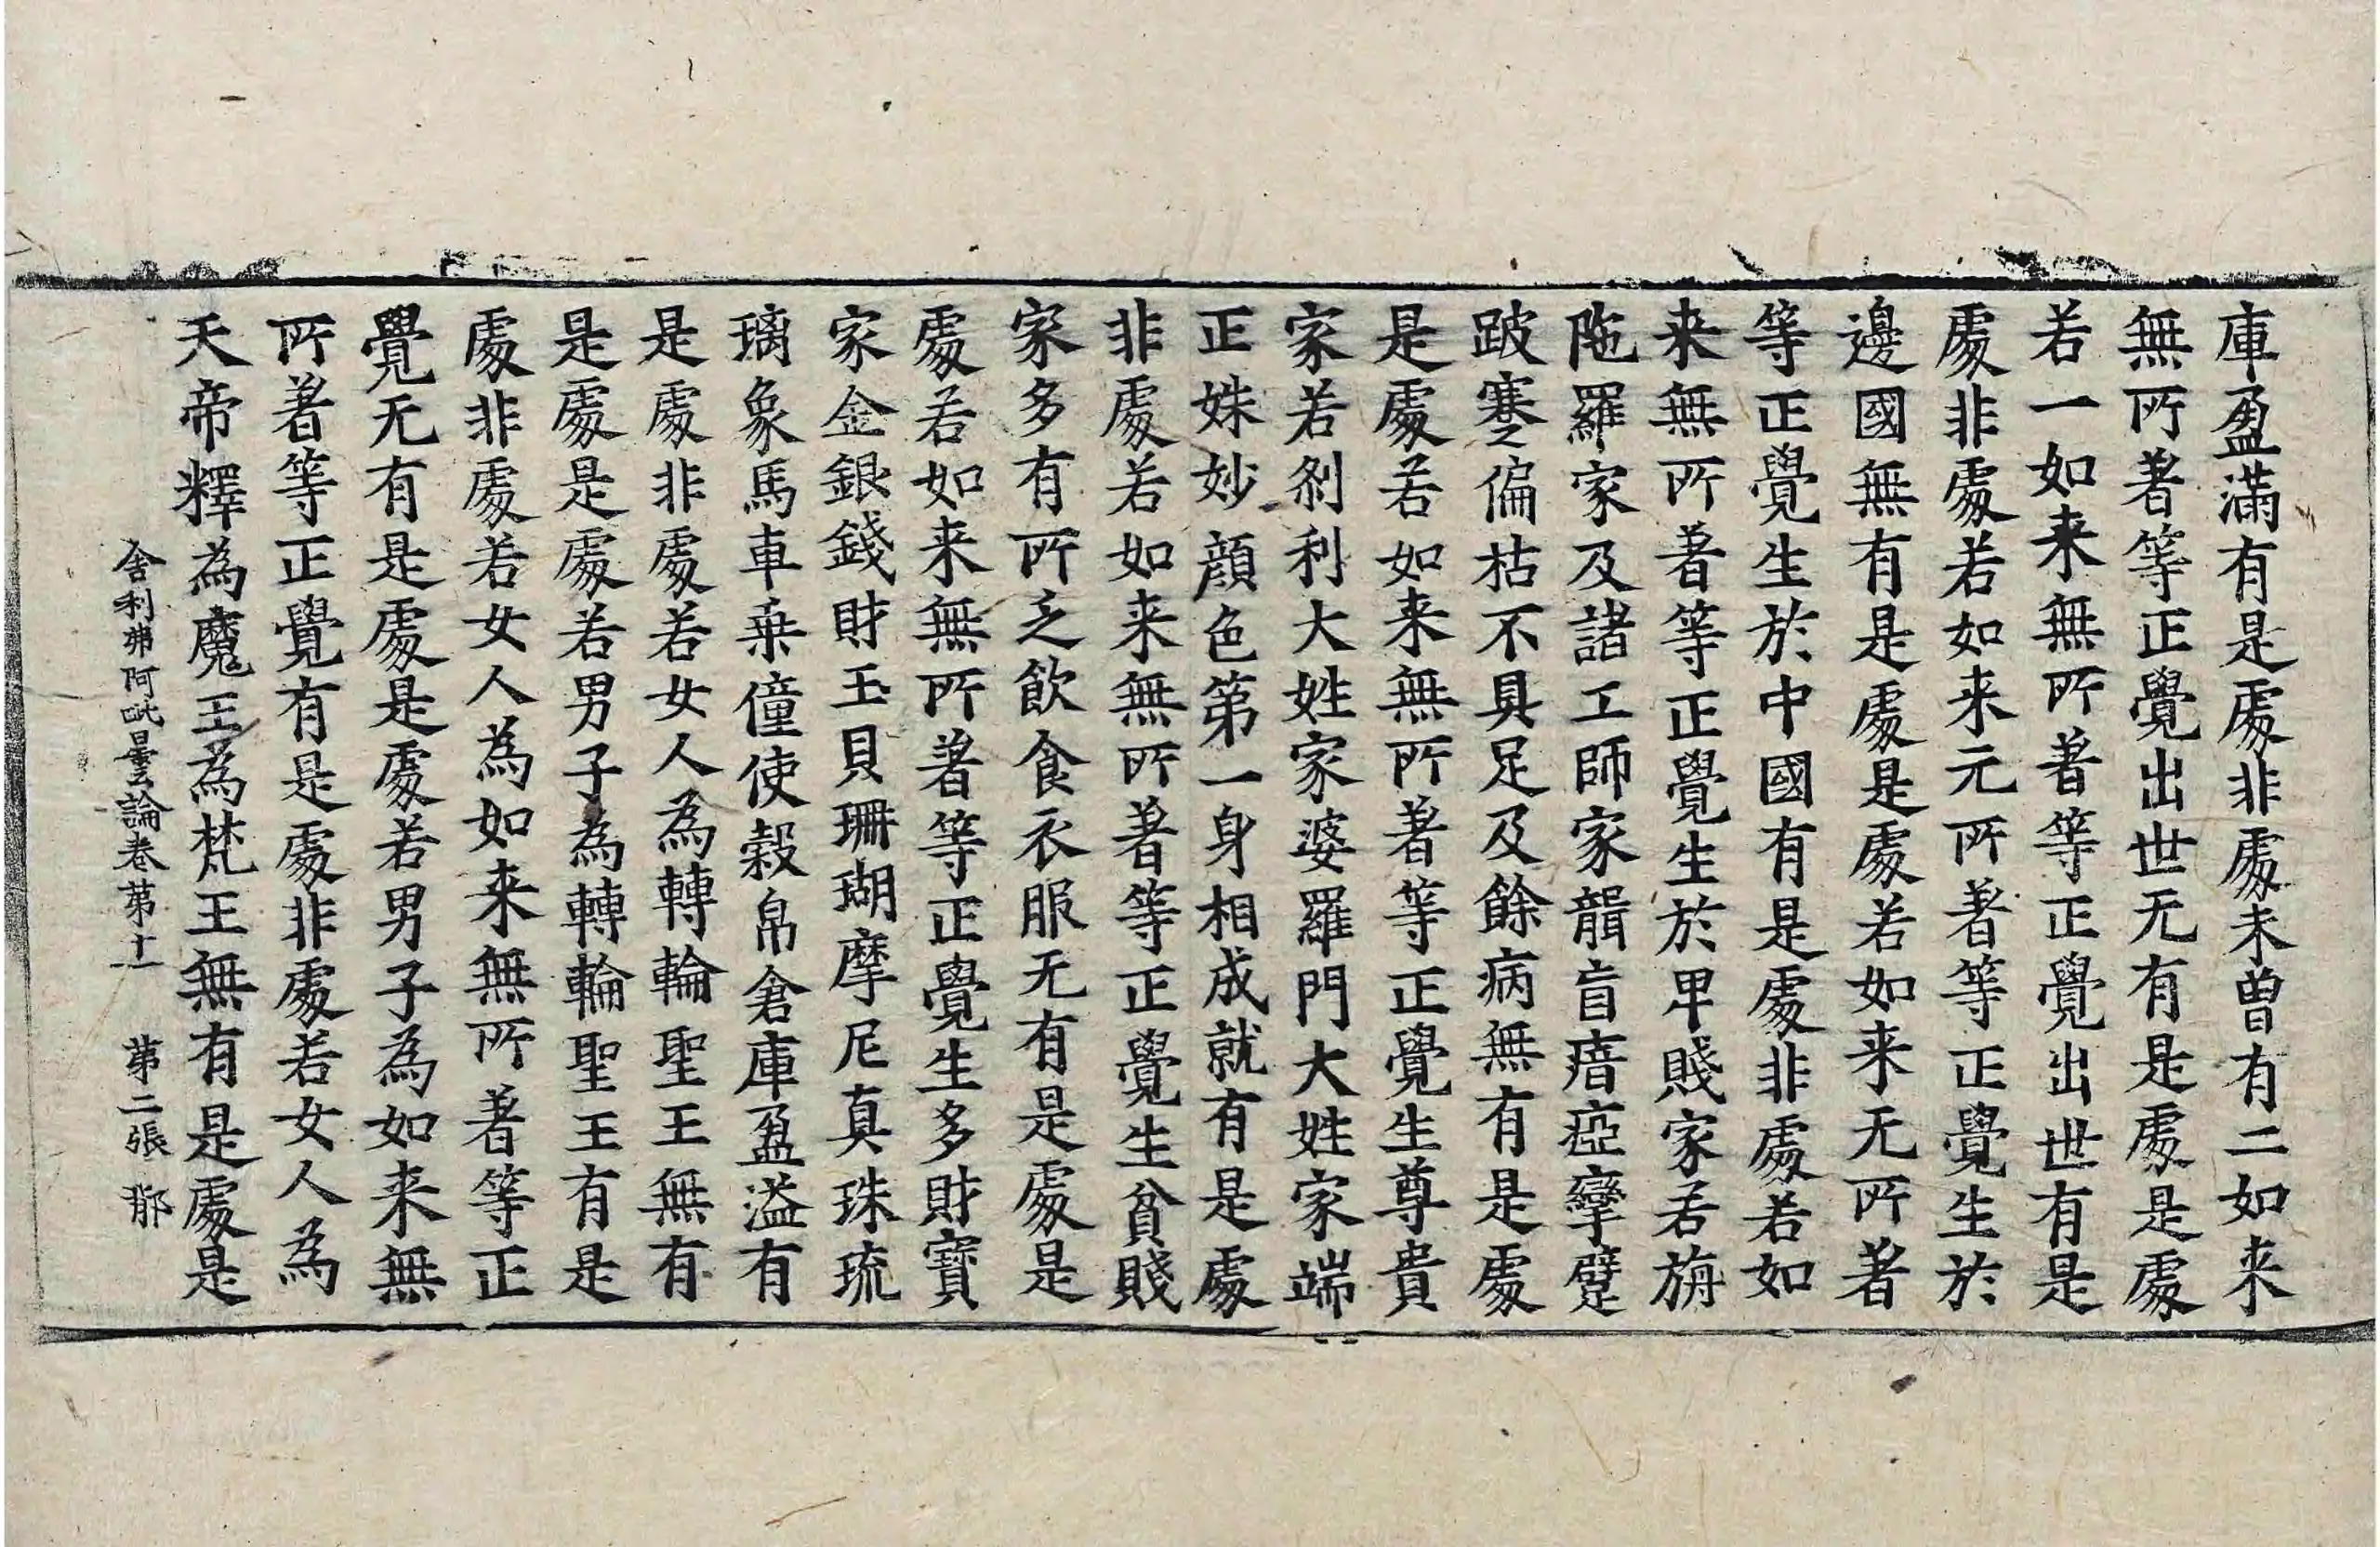 庫盈滿有是處非處未曾有二如来
無所著等正覺出世无有是處是處
若一如来無所著等正覺出世有是
處非處若如来元所著等正覺生於
邊國無有是處是處若如来无所著
等正覺生於中國有是處非處若如
来無所著等正覺生於卑賤家若旃
陁羅家及諸工師家瞎盲瘖瘂攣躄
跛蹇偏枯不具足及餘病無有是處
是處若如来無所著等正覺生尊貴
家若刹利大姓家婆羅門大姓家端
正姝妙顔色第一身相成就有是處
非處若如来無所著等正覺生貧賤
家多有所乏飲食衣服无有是處是
處若如来無所著等正覺生多財寶
家金銀錢財玉貝珊瑚摩尼真珠琉
璃象馬車乗僮使穀帛倉庫盈溢有
是處非處若女人為轉輪聖王無有
是處是處若男子為轉輪聖王有是
處非處若女人為如来無所著等正
覺无有是處是處若男子為如来無
所著等正覺有是處非處若女人為
天帝釋為魔王為梵王無有是處是
舍利弗阿毗曇論卷第十一 第二張 那